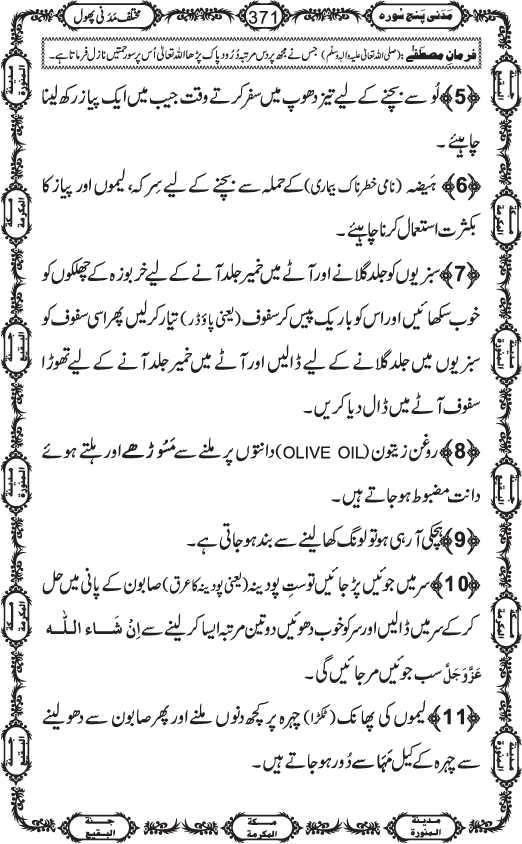 مَدَنی پنج سُورہ
371
مختلف مَدَنی پھول
فرمانِ مصطفٰے: (صلی اللہ تعالیٰ علیہ والہٖ وسلّم) جس نے مجھ پر دس مرتبہ دُرُود پاک پڑھا اللہ تعالیٰ اُس پر سو رحمتیں نازل فرماتا ہے۔
﴿5﴾ لُو سے بچنے کے لیے تیز دھوپ میں سفر کرتے وقت جیب میں ایک پیاز رکھ لینا
چاہیئے۔
﴿6﴾ ہَیضہ (نامی خطرناک بیماری) کے حملہ سے بچنے کے لیے سِرکہ، لیموں اور پیاز کا
بکثرت استعمال کرنا چاہیئے۔
﴿7﴾ سبزیوں کو جلد گلانے اور آٹے میں خمیر جلد آنے کے لیے خربوزہ کے چھلکوں کو
خوب سکھائیں اور اس کو باریک پیس کر سفوف (یعنی پاؤڈر) تیار کرلیں پھر اسی سفوف کو
سبزیوں میں جلد گلانے کے لیے ڈالیں اور آٹے میں خمیر جلد آنے کے لیے تھوڑا
سفوف آٹے میں ڈال دیا کریں۔
﴿8﴾ روغن زیتون (OLIVE OIL) دانتوں پر ملنے سے مَسُوڑھے اور ہلتے ہوئے
دانت مضبوط ہو جاتے ہیں۔
﴿9﴾ ہچکی آرہی ہو تو لونگ کھا لینے سے بند ہو جاتی ہے۔
﴿10﴾ سر میں جوئیں پڑ جائیں تو ستِ پودینہ (یعنی پودینہ کا عرق) صابون کے پانی میں حل
کر کے سر میں ڈالیں اور سر کو خوب دھوئیں دو تین مرتبہ ایسا کر لینے سے اِنْ شَاءَ اللّٰہ
عَزَّوَجَلَّ سب جوئیں مر جائیں گی۔
﴿11﴾ لیموں کی پھانک (ٹکڑا) چہرہ پر کچھ دنوں ملنے اور پھر صابون سے دھو لینے
سے چہرہ کے کیل مُہاسے دُور ہو جاتے ہیں۔
جنة البقیع
مكة المكرمة
مدینة المنورة